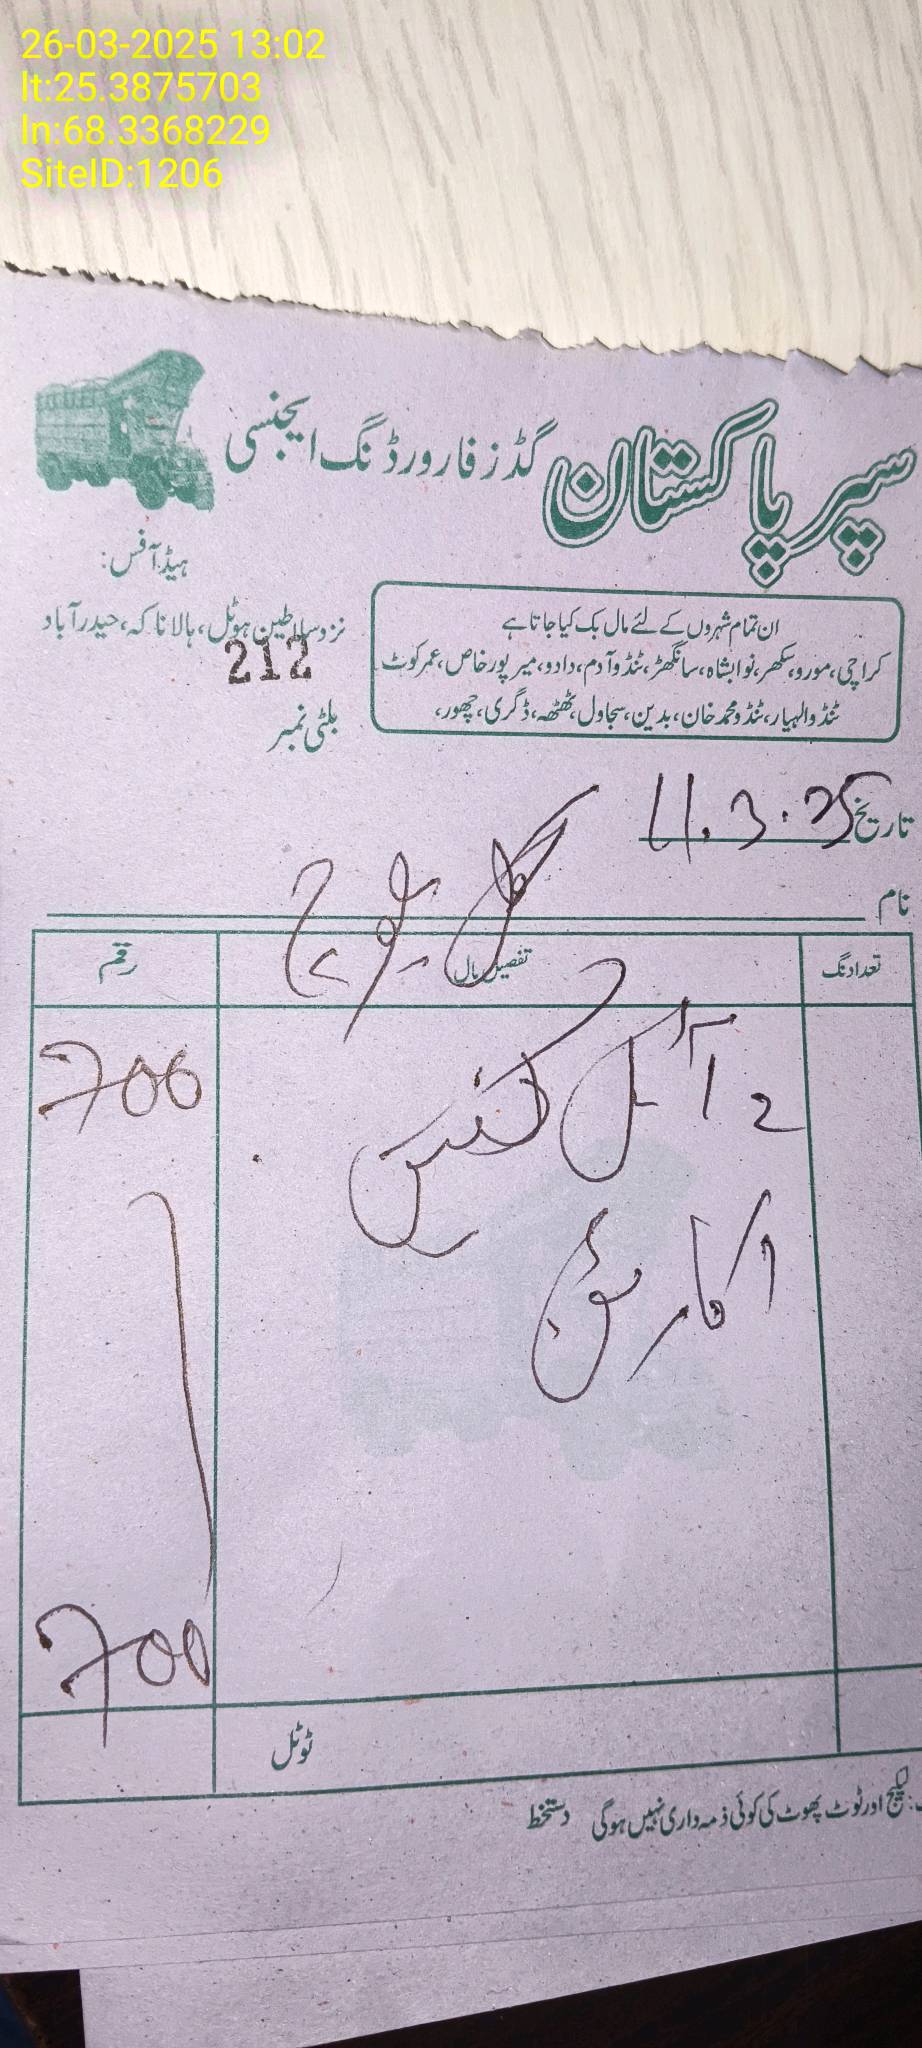 26-03-2025 13:02
lt:25.3875703
ln:68.3368229
SiteID:1206
سپر پاکستان گڈز فارورڈنگ ایجنسی
ہیڈ آفس:
نزد سلاطین ہوٹل، ہالا ناکہ، حیدرآباد
ان تمام شہروں کے لئے مال بک کیا جاتا ہے
کراچی، مورو، سکھر، نوابشاہ، سانگھڑ، ٹنڈوآدم، دادو، میرپورخاص، عمرکوٹ
ٹنڈوالہیار، ٹنڈومحمدخان، بدین، سجاول، ٹھٹھہ، ڈگری، چھور،
212
بلٹی نمبر
تاریخ 11.3.25
نام
گل بلوچ
تعدادنگ تفصیل مال رقم
2 آئل 700
700
ٹوٹل
لیکیج اور ٹوٹ پھوٹ کی کوئی ذمہ داری نہیں ہوگی دستخط